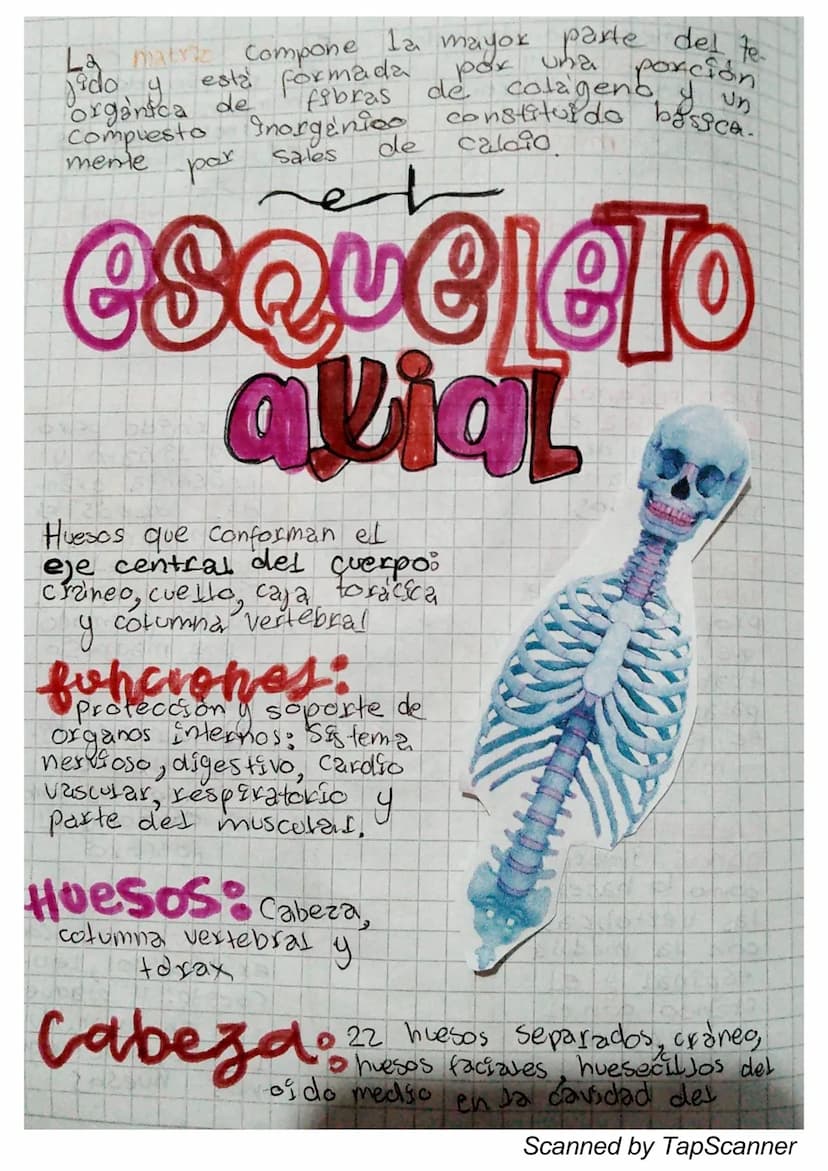 La matriz compone la mayor parte del te-
jido y está formada por una porción
orgánica de fibras de colágeno y un
compuesto inorgánico constituido básica-
mente por sales de calcio.
el
esqueleto
axial
Huesos que conforman el
eje central del cuerpo:
cráneo, cuello, caja torácica
y columna vertebral
funciones:
protección y soporte de
organos internos: Sistema
nervioso, digestivo, cardio
vascular, respiratorio y
parte del muscular.
Huesos: Cabeza,
columna vertebral y
tórax
Cabeza: 22 huesos separados, cráneo,
huesos faciales, huesecillos del
oido medio en la cavidad del
Scanned by TapScanner